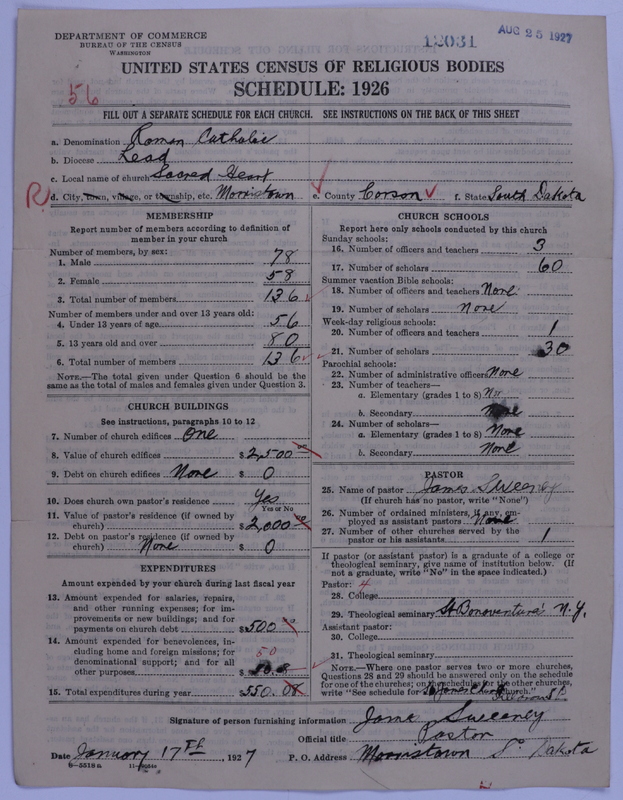 DEPARTMENT OF COMMERCE
BUREAU OF THE CENSUS
WASHINGTON
12031
AUG 25 1927
UNITED STATES CENSUS OF RELIGIOUS BODIES
SCHEDULE: 1926
56
FILL OUT A SEPARATE SCHEDULE FOR EACH CHURCH. SEE INSTRUCTIONS ON THE BACK OF THIS SHEET
a. Denomination Roman Catholic
b. Diocese Lead
c. Local name of church Sacred Heart
R d. City, town, village, or township, etc. Morristown e. County Corson f. State South Dakota
MEMBERSHIP
Report number of members according to definition of member in your church
Number of members, by sex:
1. Male 78
2. Female 58
3. Total number of members 136
Number of members under and over 13 years old:
4. Under 13 years of age 56
5. 13 years old and over 80
6. Total number of members 136
NOTE.—The total given under Question 6 should be the same as the total of males and females given under Question 3.
CHURCH BUILDINGS
See instructions, paragraphs 10 to 12
7. Number of church edifices One
8. Value of church edifices $2,500 00
9. Debt on church edifices None $ 0
10. Does church own pastor's residence Yes
Yes or No
11. Value of pastor's residence (if owned by church) $2,000 00
12. Debt on pastor's residence (if owned by church) None $ 0
EXPENDITURES
Amount expended by your church during last fiscal year
13. Amount expended for salaries, repairs, and other running expenses; for improvements or new buildings; and for payments on church debt $500
14. Amount expended for benevolences, including home and foreign missions; for denominational support; and for all other purposes 50
15. Total expenditures during year $550.08
CHURCH SCHOOLS
Report here only schools conducted by this church
Sunday schools:
16. Number of officers and teachers 3
17. Number of scholars 60
Summer vacation Bible schools:
18. Number of officers and teachers None
19. Number of scholars None
Week-day religious schools:
20. Number of officers and teachers 1
21. Number of scholars 30
Parochial schools:
22. Number of administrative officers None
23. Number of teachers—
a. Elementary (grades 1 to 8)
b. Secondary None
24. Number of scholars—
a. Elementary (grades 1 to 8) None
b. Secondary None
PASTOR
25. Name of pastor James Sweeney
(If church has no pastor, write "None")
26. Number of ordained ministers, if any, employed as assistant pastors None
27. Number of other churches served by the pastor or his assistants 1
If pastor (or assistant pastor) is a graduate of a college or theological seminary, give name of institution below. (If not a graduate, write "No" in the space indicated.)
Pastor: 4
28. College
29. Theological seminary St Bonaventure's N.Y.
Assistant pastor:
30. College
31. Theological seminary
NOTE.—Where one pastor serves two or more churches, Questions 28 and 29 should be answered only on the schedule for one of the churches; on schedules for the other churches, write "See schedule for church."
Signature of person furnishing information James Sweeney
Official title Pastor
Date January 17th, 1927 P. O. Address Morristown S. Dakota
8—5518a